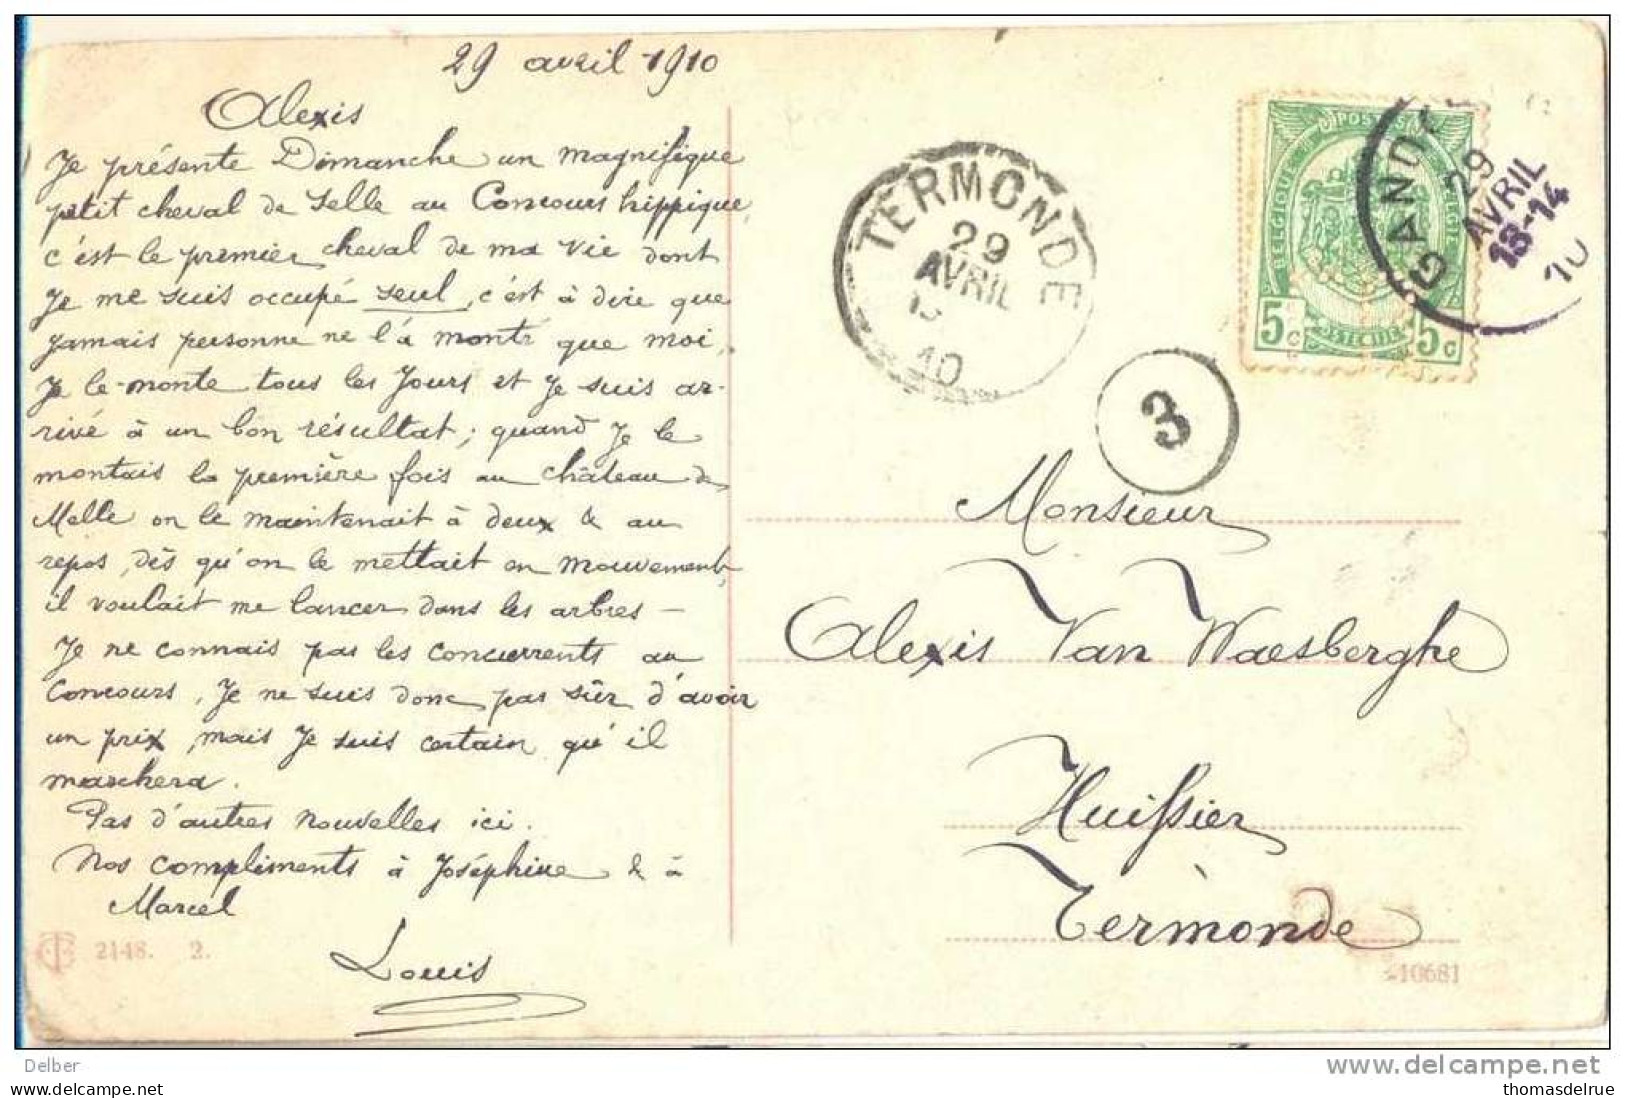 29 avril 1910
Alexis
Je présente Dimanche un magnifique
petit cheval de selle au Concours hippique,
c'est le premier cheval de ma vie dont
je me suis occupé seul, c'est à dire que
jamais personne ne l'a monté que moi,
je le monte tous les jours et je suis ar-
rivé à un bon résultat; quand je le
montais la première fois au château de
Melle on le maintenait à deux & au
repos, dès qu'on le mettait en mouvement,
il voulait me lancer dans les arbres —
Je ne connais pas les concurrents au
concours, je ne suis donc pas sûr d'avoir
un prix, mais je suis certain qu'il
marchera.
Pas d'autres nouvelles ici.
Nos compliments à Joséphine & à
Marcel
Louis
2148. 2.
TERMONDE
29
AVRIL
10
3
GAND
29
AVRIL
13-14
10
POSTES
BELGIQUE
BELGIE
5c
5c
Monsieur
Alexis Van Waesberghe
Huissier
Termonde
10681
Delber
www.delcampe.net
thomasdelrue